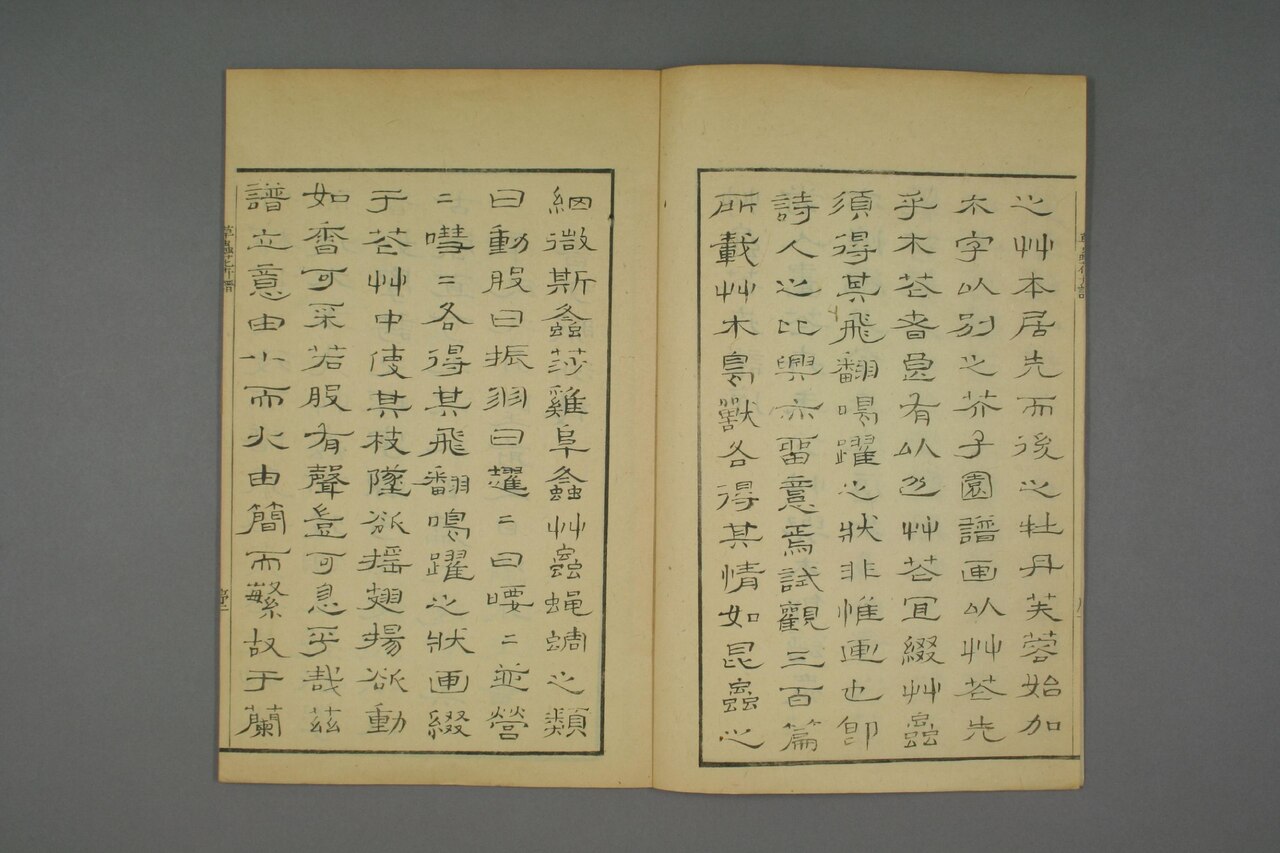 之艸本居先而後之牡丹芙蓉始加
木字以別之芥子園譜画以艸芲先
乎木芲者皀有以也艸芲冝綴艸蟲
須得其飛翻鳴躍之狀非惟画也即
詩人之比興亦畱意焉試觀三百篇
所載艸木鳥獸各得其情如昆蟲之
細微斯螽莎雞阜螽艸蟲蝇蜩之類
曰動股曰振羽曰趯二曰喓二並營
二嘒二各得其飛翻鳴躍之狀画綴
于芲艸中使其枝墜欲揺翅揚欲動
如香可采若股有聲豈可忽乎哉茲
譜立意由小而大由簡而繁故于蘭
草蟲花卉譜
序二